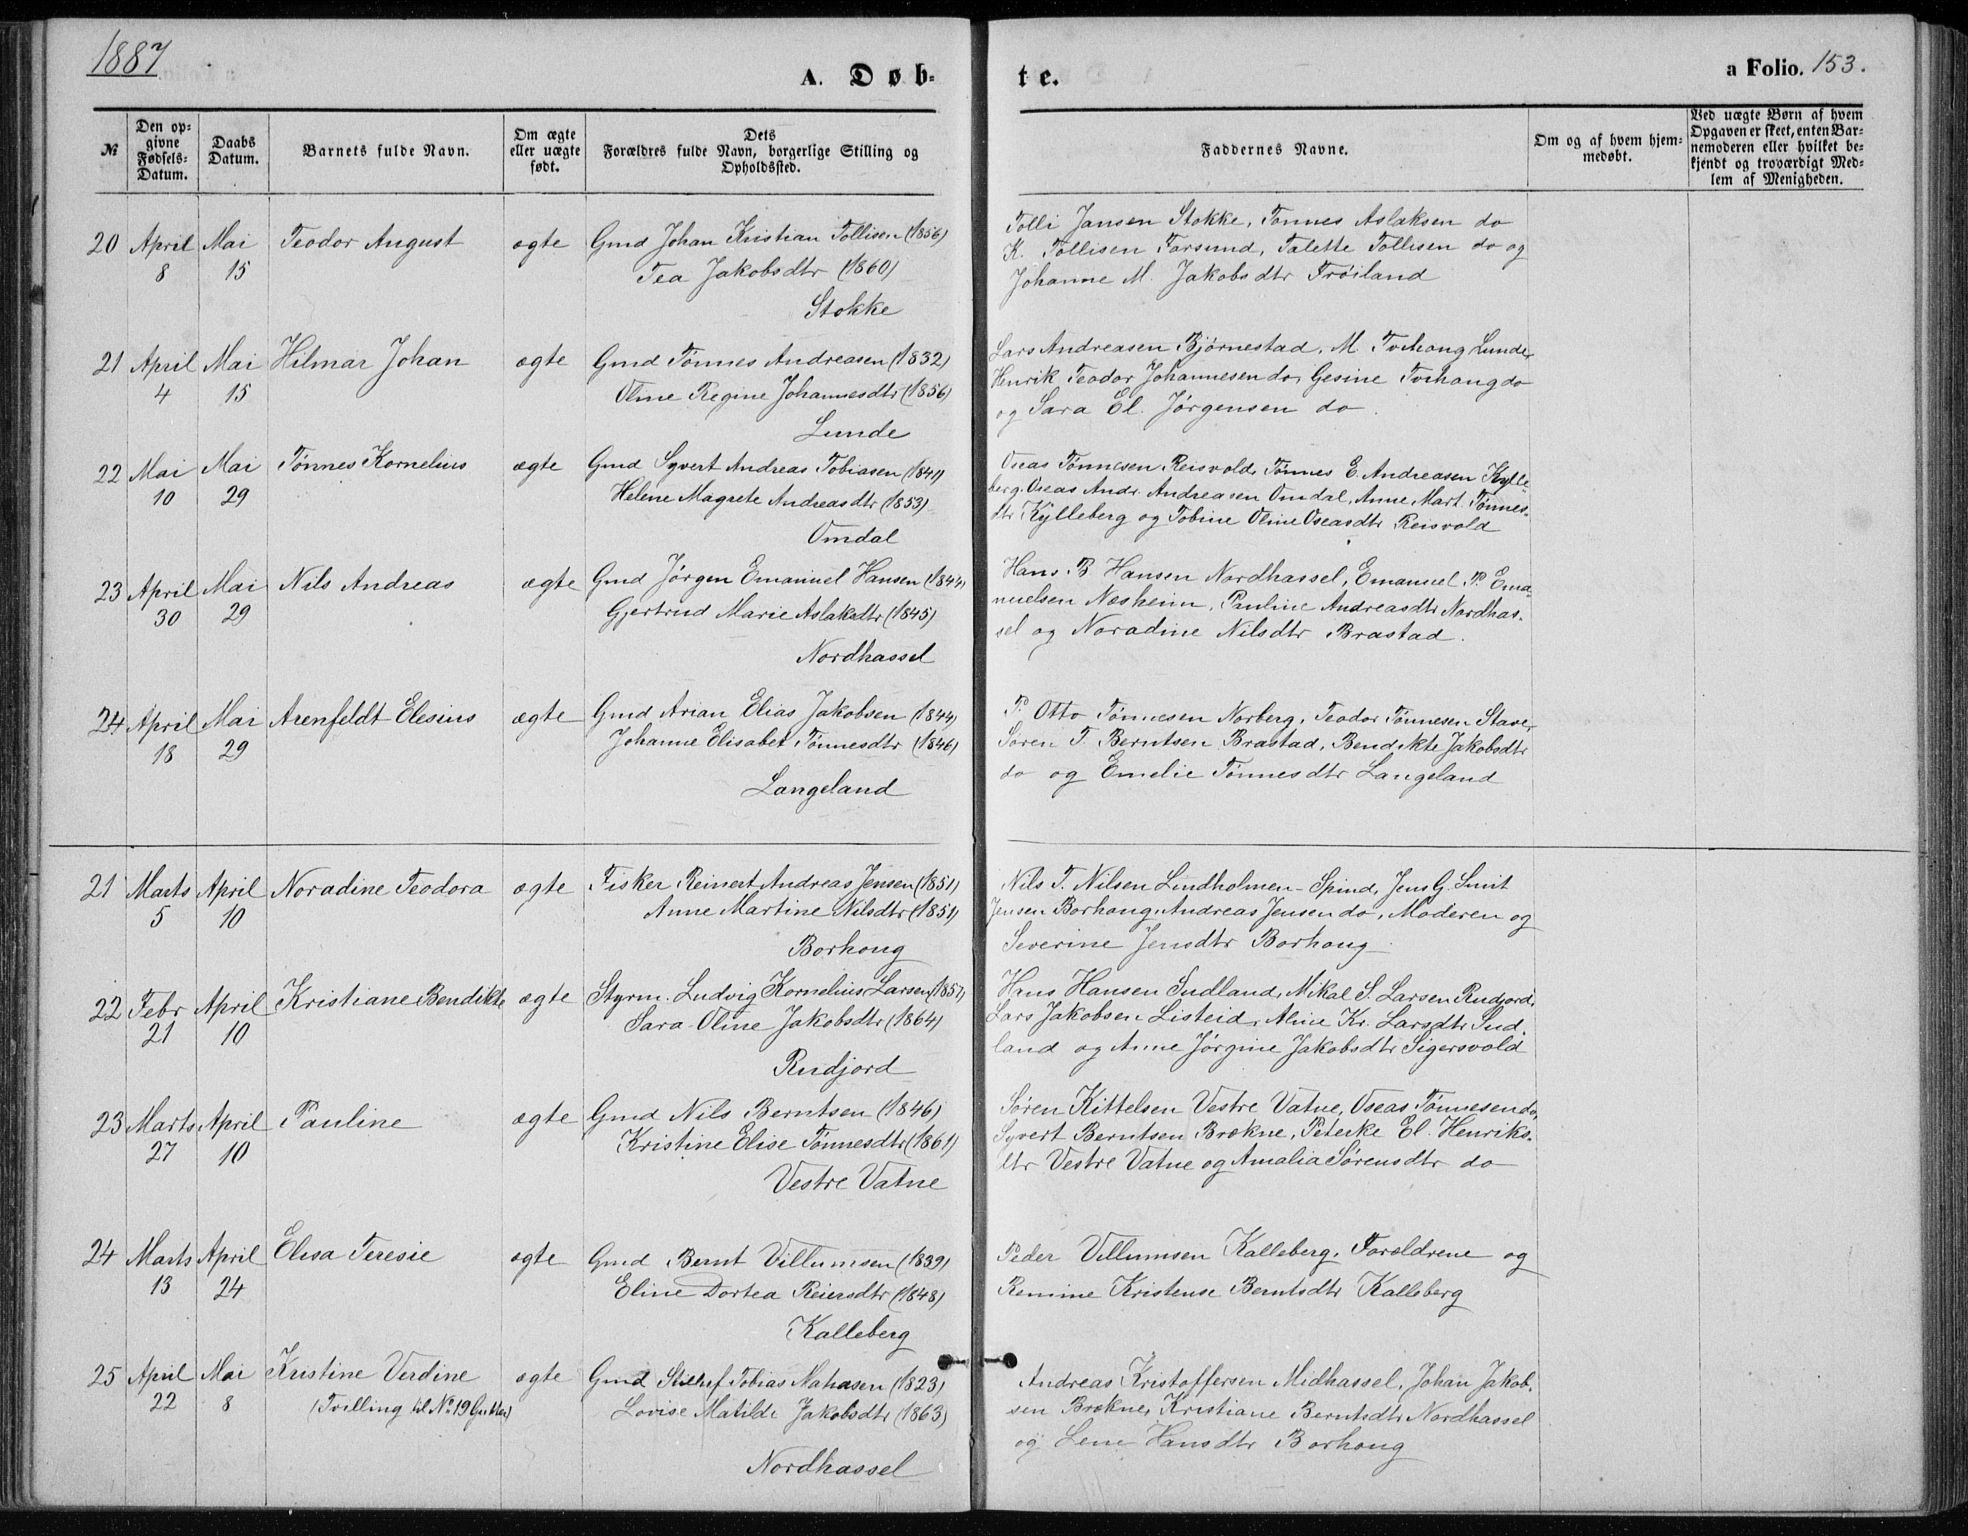 1887
A. Døb-
te.
a Folio. 153.
№
Den op-
givne
Fødsels-
Datum.
Daabs
Datum.
Barnets fulde Navn.
Om ægte
eller uægte
født.
Dets
Forældres fulde Navn, borgerlige Stilling og
Opholdssted.
Faddernes Navne.
Om og af hvem hjem-
medøbt.
Ved uægte Børn af hvem
Opgaven er skeet, enten Bar-
nemoderen eller hvilket be-
kjendt og troværdigt Med-
lem af Menigheden.
20 April Mai Teodor August ægte Gmd Johan Kristian Tollisen (1856)
8 15 Tea Jakobsdtr (1860)
Stokke
Tolli Jansen Stokke, Tønnes Aslaksen do
K. Tollisen Farsund, Talette Tollisen do og
Johanne M. Jakobsdtr Frøiland
21 April Mai Hilmar Johan ægte Gmd Tønnes Andreasen (1832)
4 15 Oline Regine Johannesdtr (1856)
Lunde
Lars Andreasen Bjørnestad, M. Tvihoug Lunde,
Henrik Teodor Johannesen do, Gesine Tvihoug do
og Sara El. Jørgensen do.
22 Mai Mai Tønnes Kornelius ægte Gmd Syvert Andreas Tobiasen (1841)
10 29 Helene Magrete Andreasdtr (1853)
Omdal
Oseas Tønnesen Reisvold, Tønnes E. Andreasen Kylle-
berg, Oseas Andr. Andreasen Omdal, Anne Mart. Tønnes-
dtr Kylleberg og Tobine Oline Oseasdtr Reisvold
23 April Mai Nils Andreas ægte Gmd Jørgen Emanuel Hansen (1844)
30 29 Gjertrud Marie Aslaksdtr (1845)
Nordhassel
Hans B Hansen Nordhassel, Emanuel P. Ema-
nuelsen Nesheim, Pauline Andreasdtr Nordhas-
sel og Noradine Nilsdtr Brastad.
24 April Mai Arenfeldt Elesius ægte Gmd Arian Elias Jakobsen (1844)
18 29 Johanne Elisabet Tønnesdtr (1846)
Langeland
P. Otto Tønnesen Norberg, Teodor Tønnesen Stave,
Søren T. Berntsen Brastad, Bendikte Jakobsdtr
do og Emelie Tønnesdtr Langeland
21 Marts April Noradine Teodora ægte Fisker Reinert Andreas Jensen (1851)
5 10 Anne Martine Nilsdtr (1851)
Borhoug
Nils T. Nilsen Lindholmen - Spind, Jens G. Smit
Jensen Borhoug, Andreas Jensen do, Moderen og
Severine Jensdtr Borhoug.
22 Febr April Kristiane Bendikte ægte Styrm. Ludvig Kornelius Larsen (1857)
21 10 Sara Oline Jakobsdtr (1864)
Rudjord
Hans Hansen Sudland, Mikal S. Larsen Rudjord,
Lars Jakobsen Listeid, Aline Kr. Larsdtr Sud-
land og Anne Jørgine Jakobsdtr Sigersvold
23 Marts April Pauline ægte Gmd Nils Berntsen (1846)
27 10 Kristine Elise Tønnesdtr (1861)
Vestre Vatne
Søren Kittelsen Vestre Vatne, Oseas Tønnesen do,
Syvert Berntsen Brekne, Peterke El. Henriks-
dtr Vestre Vatne og Amalia Sørensdtr do
24 Marts April Elisa Teresie ægte Gmd Bernt Villumsen (1839)
13 24 Eline Dortea Reiersdtr (1848)
Kalleberg
Peder Villumsen Kalleberg, Forældrene og
Remine Kristense Berntsdtr Kalleberg
25 April Mai Kristine Verdine ægte Gmd Tobias (1823)
22 8 (Tvilling til No 19 Gutter) Lovise Matilde Jakobsdtr (1863)
Nordhassel
Andreas Kristoffersen Midhassel, Johan Jakob-
sen Brekne, Kristiane Berntsdtr Nordhassel
og Lene Hansdtr Borhoug